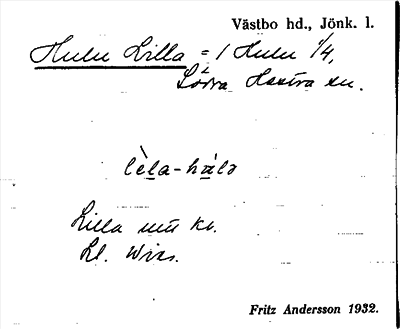 Västbo hd., Jönk. l.
Hulu Lilla = 1 Hulu 1/4,
Södra Hestra sn.
lèla-hálə
Lilla
Ll.
Fritz Andersson 1932.